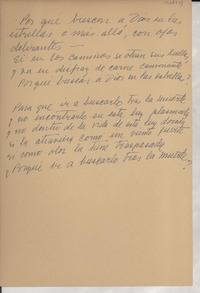 Por qué buscar a Dios en las
estrellas o mas allá, con ojos
delirantes —
Si en los caminos se oyen sus huellas
y va en disfraz de carne caminante
Porqué buscar a Dios en las estrellas?
Para que ir a buscarlo tras la muerte
y no encontrarlo en este hoy
y no dentro de la vida de esta
si la atraviesa como un viento fuerte
si como olor la tiene traspasada
¿Porque ir a buscarlo tras la muerte?